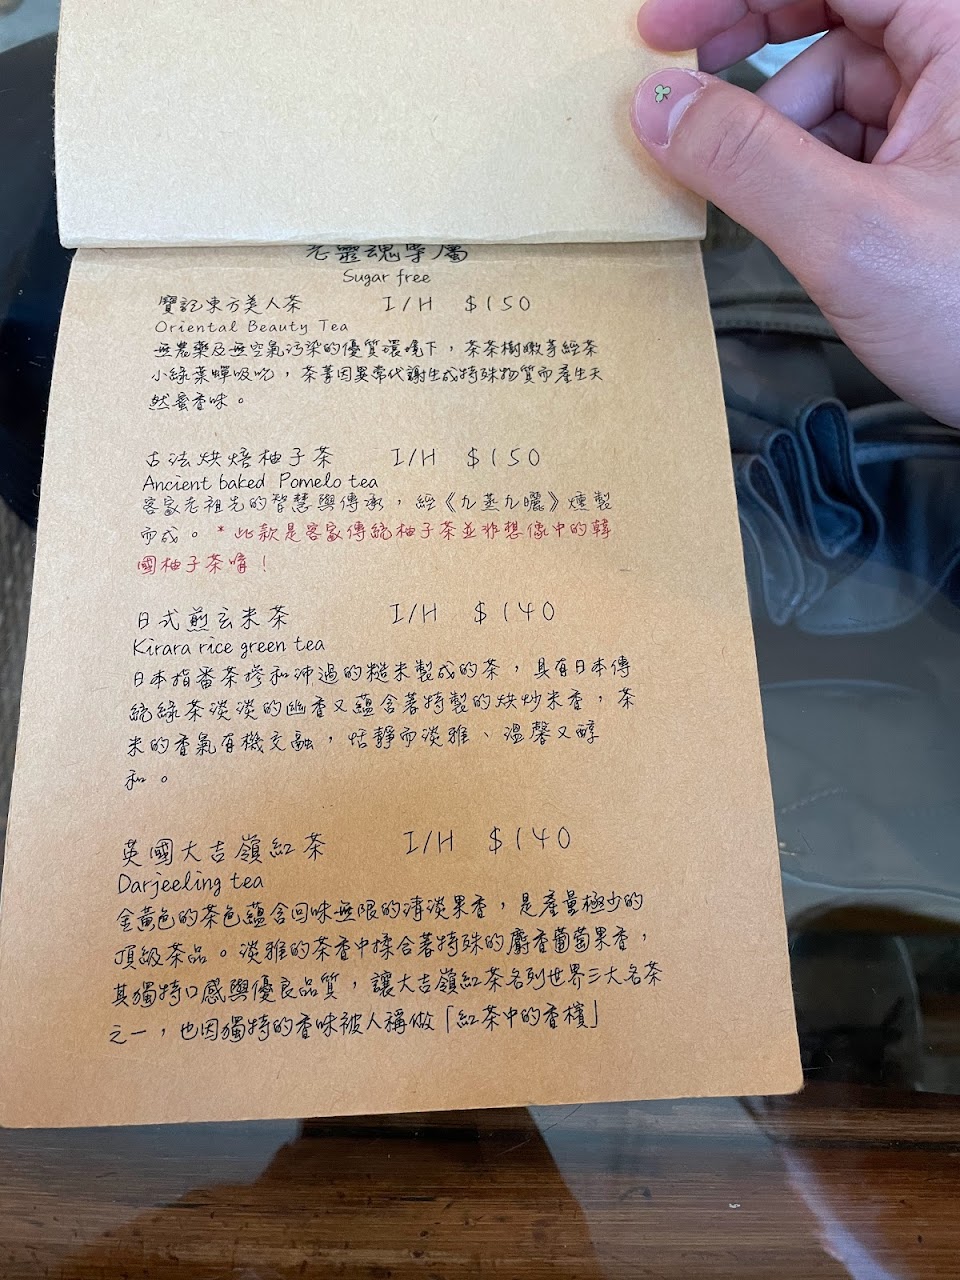 老靈魂專屬
Sugar free
寶記東方美人茶 I/H $150
Oriental Beauty Tea
無農藥及無空氣污染的優質環境下，茶茶樹嫩芽經茶
小綠葉蟬吸吮，茶菁因異常代謝生成特殊物質而產生天
然蜜香味。
古法烘焙柚子茶 I/H $150
Ancient baked Pomelo tea
客家老祖先的智慧與傳承，經《九蒸九曬》燻製
而成。*此款是客家傳統柚子茶並非想像中的韓
國柚子茶唷！
日式煎玄米茶 I/H $140
Kirara rice green tea
日本指番茶摻和沖過的糙米製成的茶，具有日本傳
統綠茶淡淡的幽香又蘊含著特製的烘炒米香，茶
米的香氣有機交融，恬靜而淡雅、溫馨又醇
和。
英國大吉嶺紅茶 I/H $140
Darjeeling tea
金黃色的茶色蘊含回味無限的清淡果香，是產量極少的
頂級茶品。淡雅的茶香中揉合著特殊的麝香葡萄果香，
其獨特口感與優良品質，讓大吉嶺紅茶名列世界三大名茶
之一，也因獨特的香味被人稱做「紅茶中的香檳」